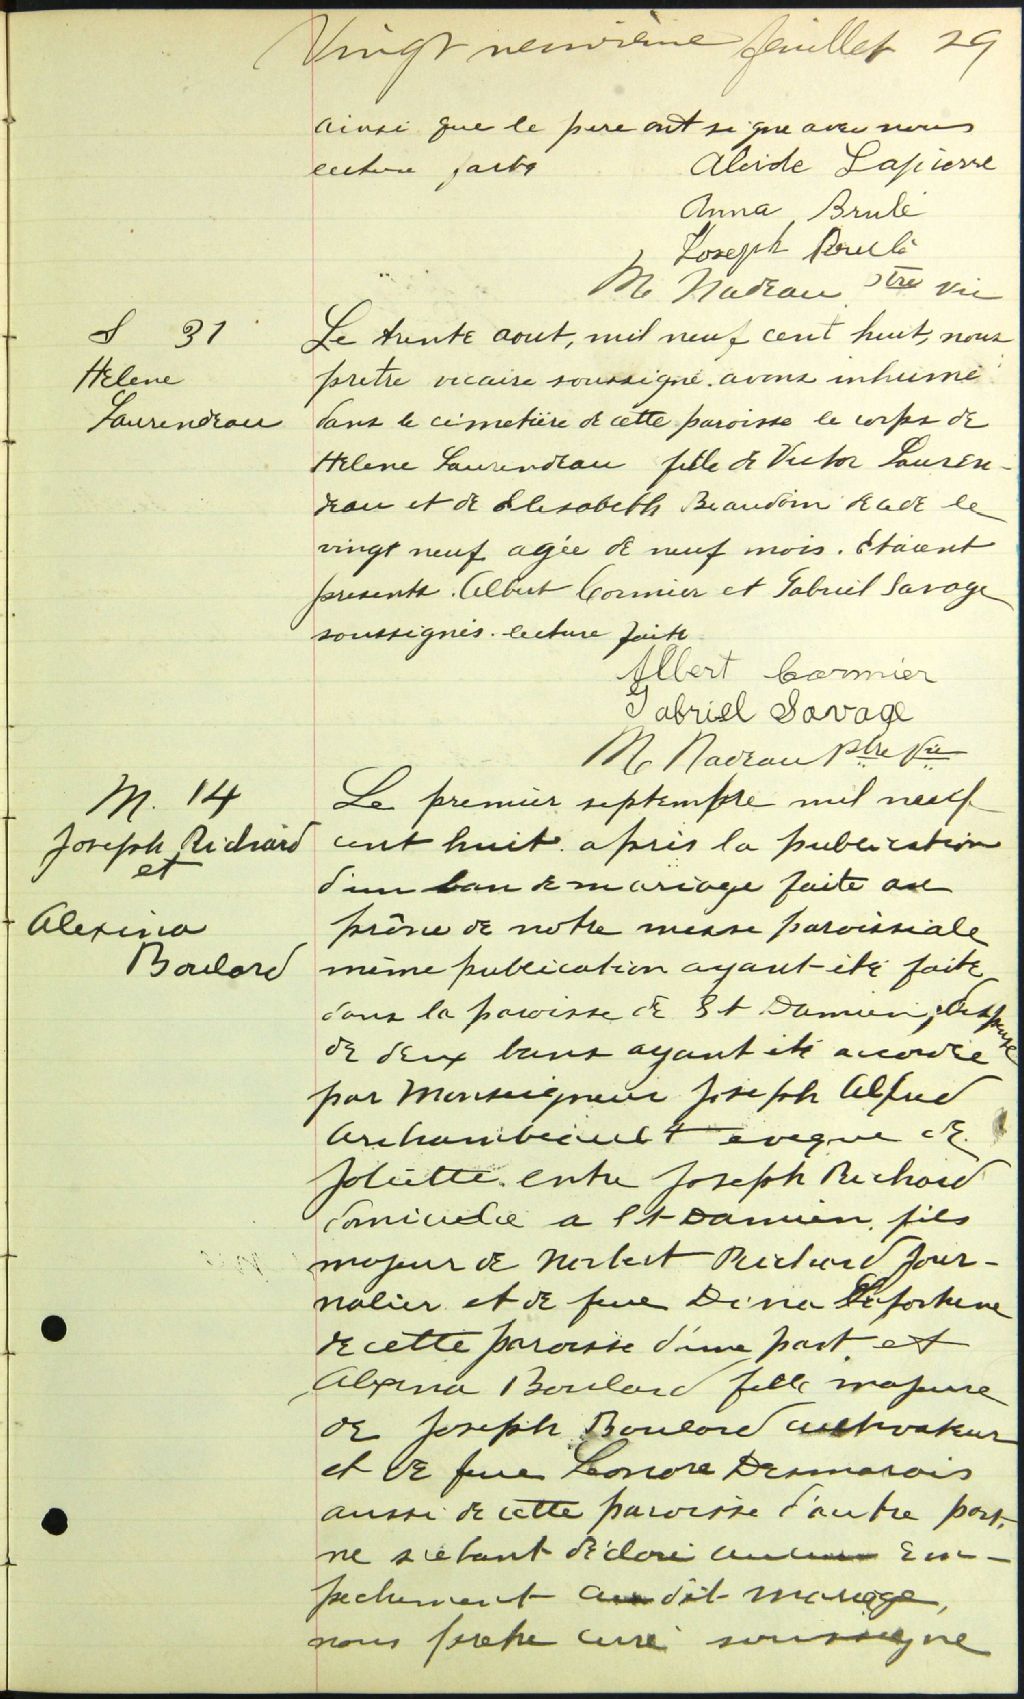 Vingt neuvième feuillet 29
ainsi que le pere ont signe avec nous
lecture faite
Alcide Lapierre
Anna Brulé
Joseph Brulé
M Nadeau Ptre Vic
S 31
Helene
Laurendeau
Le trente aout, mil neuf cent huit, nous
pretre vicaire soussigné avons inhumé
dans le cimetière de cette paroisse le corps de
Helene Laurendeau fille de Victor Lauren-
deau et de Elesabeth Beaudoin decede le
vingt neuf agée de neuf mois. Étaient
presents. Albert Cormier et Gabriel Savage
soussignés. lecture faite
Albert Cormier
Gabriel Savage
M Nadeau Ptre Vic
M. 14
Joseph Richard
et
Alexina
Boulard
Le premier septembre mil neuf
cent huit. après la publication
d'un ban de mariage faite au
prône de notre messe paroissiale
même publication ayant été faite
dans la paroisse de St Damien, dispense
de deux bans ayant été accordée
par Monseigneur Joseph Alfred
Archambeault eveque de
Joliette. entre Joseph Richard
domicilié a St Damien. fils
majeur de Norbert Richard jour-
nalier et de feue Dina Lafortune
de cette paroisse d'une part. et
Alexina Boulard fille majeure
de Joseph Boulard cultivateur
et de feue Leonore Desmarais
aussi de cette paroisse d'autre part.
ne s'etant déclaré aucun em-
pechement au dit mariage,
nous pretre curé soussigne